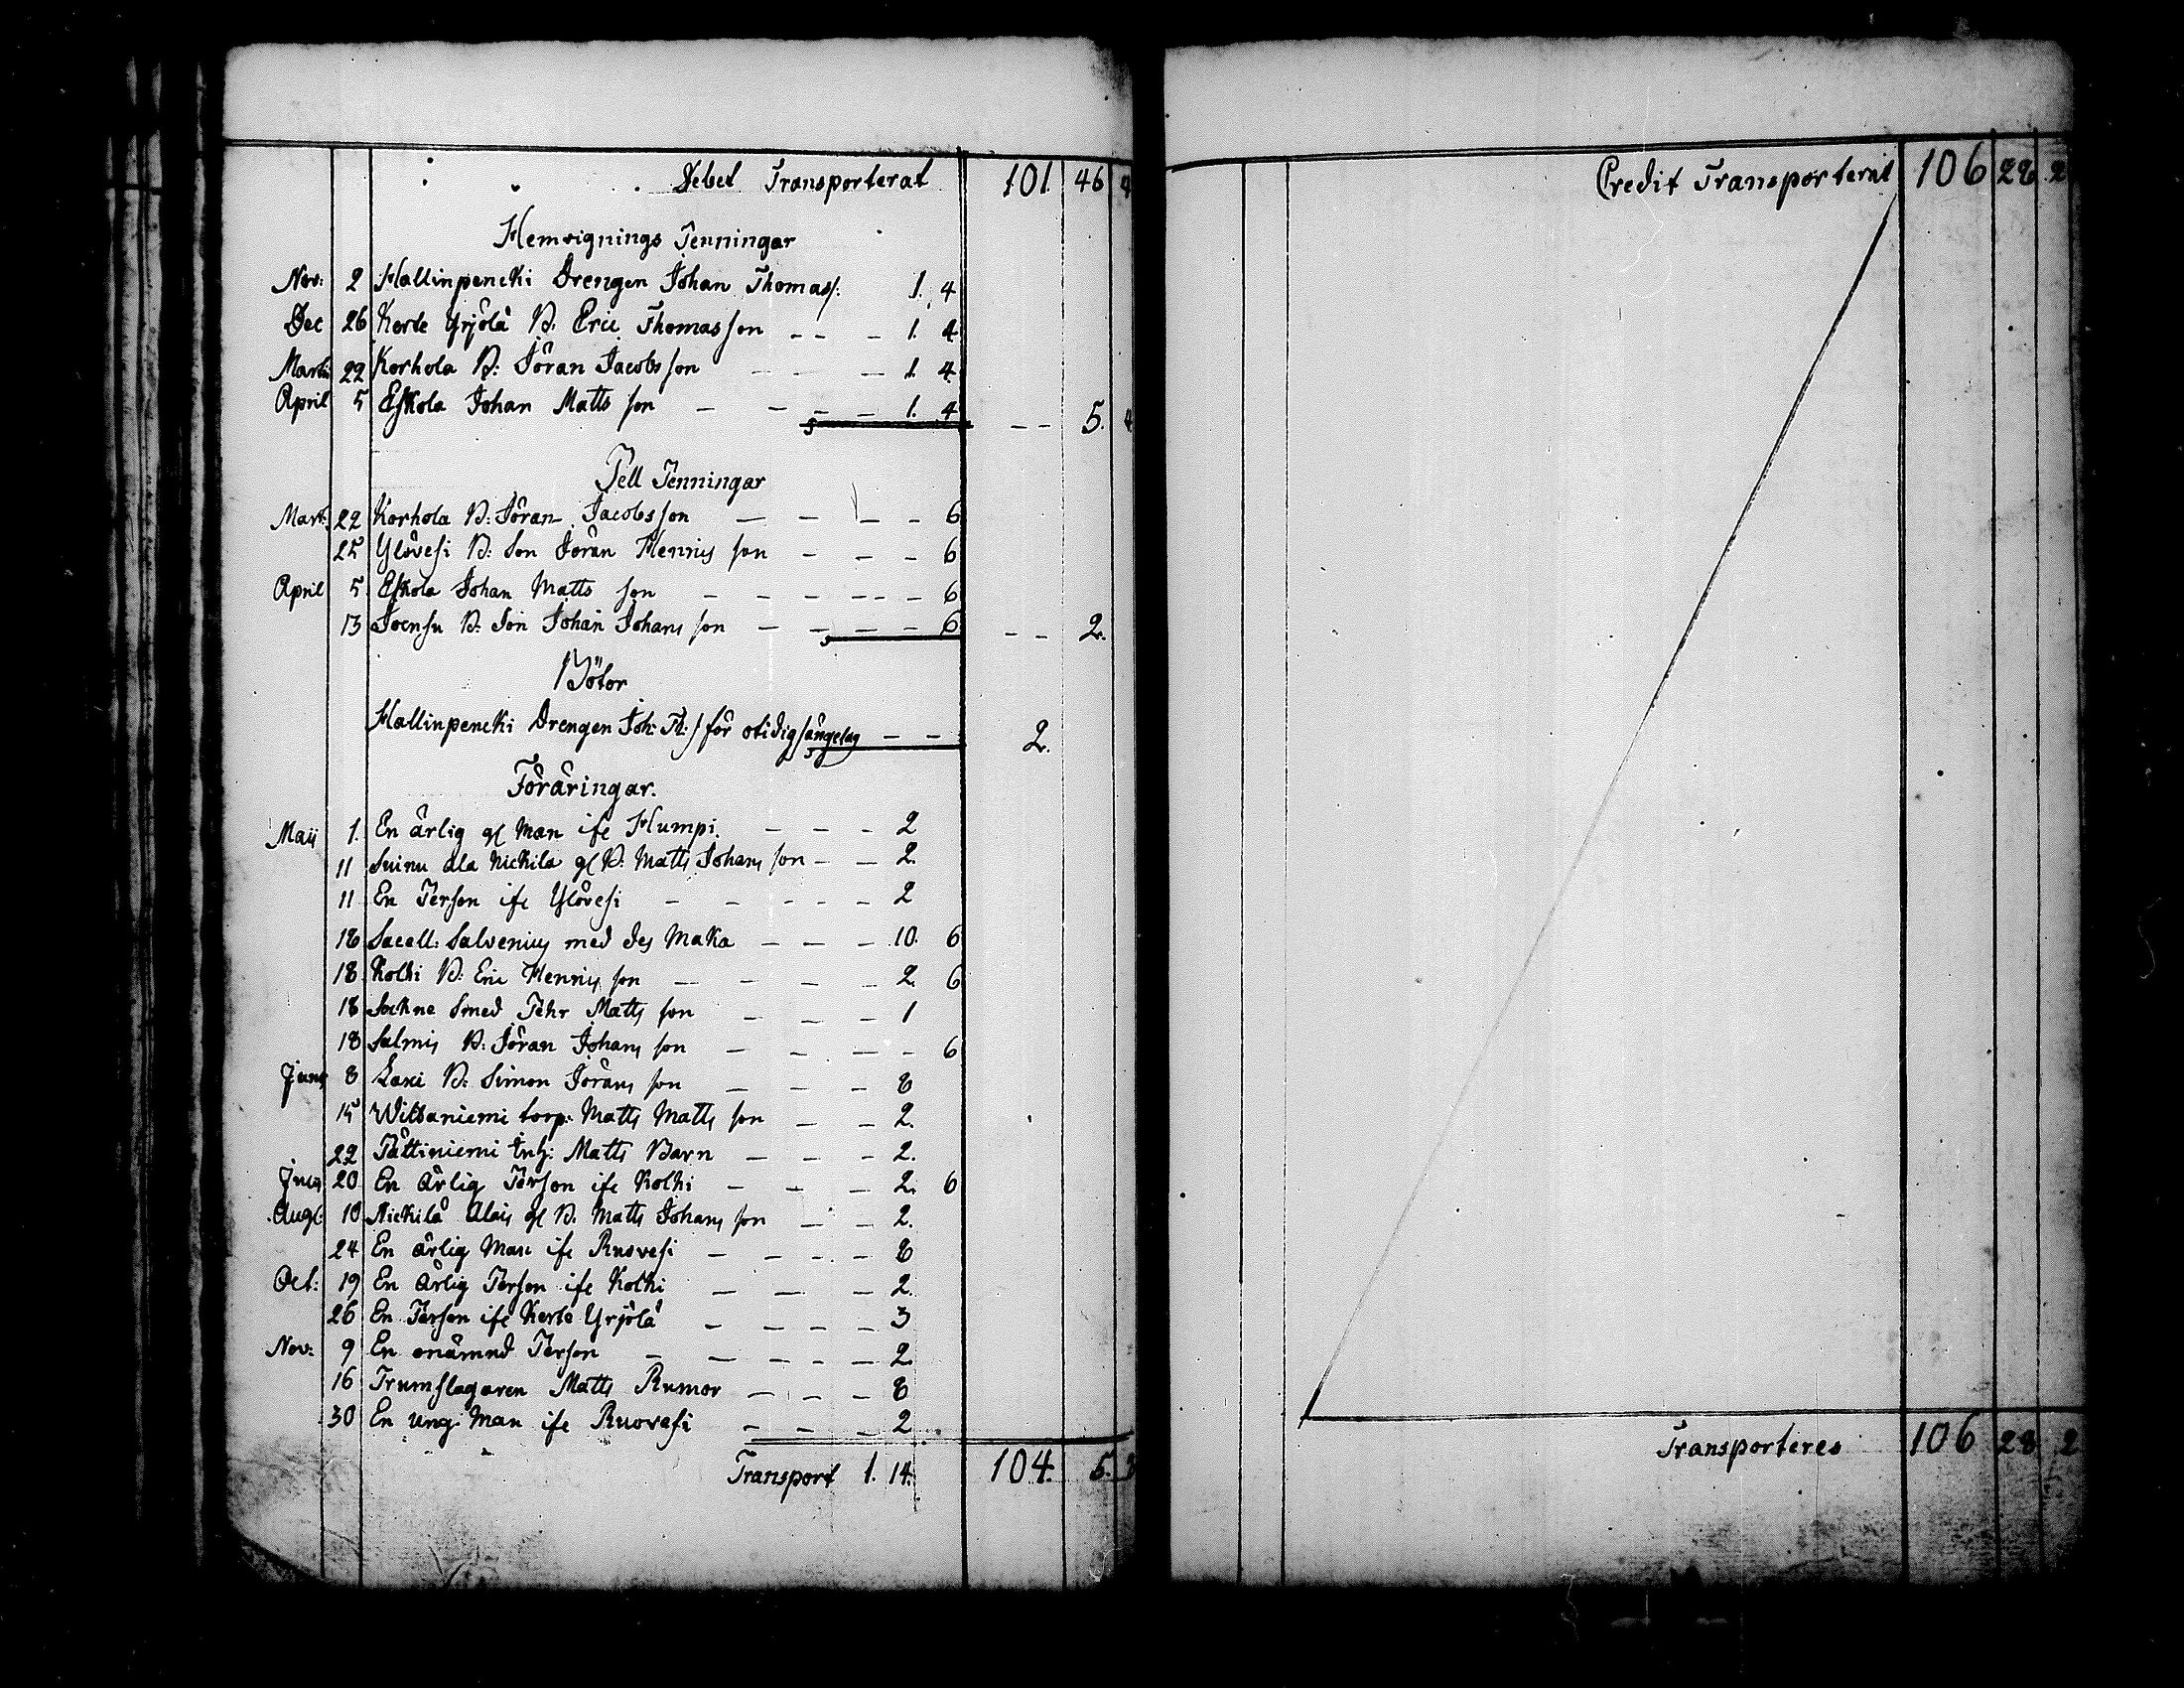 Debet Transporterat 101 46 4
Hemvignings Penningar
Nov: 2 Hallinpencki Drengen Johan Thomass: 1. 4
Dec 26 Kerte Yrjölä B: Eric Thomasson - - - 1. 4
Martii 22 Korhola B: Jöran Jacobsson - - - 1. 4
April 5 Eskola Johan Matts son - - - - 1. 4 - - 5. 4
Tell Penningar
Mart: 22 Korhola B: Jöran Jacobsson - - - - 6
25 Ylövesi B: Son Jöran Henrics son - - - 6
April 5 Eskola Johan Matts son - - - - - - 6
13 Joensu B: Son Johan Johans son - - - - 6 - - 2.
Böter
Hallinpencki Drengen Joh: Th: s för otidig sängelag - - 2.
Föräringar.
Maii 1. En ärlig gl man ifr Humpi. - - - 2
11 Suinu Ala Nickila gl B: Matts Johans son - - 2.
11 En Person ifr Ylövesi - - - - - 2
18 Sacell: Salvenius med des Maka - - - 10. 6
18 Kolhi B: Eric Henrics son - - - - 2. 6
18 Sockne Smed Pehr Matts son - - - 1
18 Salmis B: Jöran Johans son - - - - 6
Junii 8 Laxi B: Simon Jörans son - - - - 8
15 Wittaniemi torp: Matts Matts son - - 2.
22 Pättiniemi Inh: Matts Barn - - - 2.
Julii 20 En Ärlig Person ifr Kolhi - - - 2. 6
Aug: 10 Nickilä Alais gl B. Matts Johans son - - 2.
24 En ärlig Man ifr Ruovesi - - - - 8
Oct: 19 En Ärlig Person ifr Kolhi - - - 2.
26 En Person ifr Kerte Yrjölä - - - - 3
Nov: 9 En onämnd Person - - - - - 2.
16 Trumslagaren Matts Rumor - - - 8
30 En ung Man ifr Ruovesi - - - 2
Transport 1. 14. 104. 5.
Credit Transporterat 106 28 2
Transporteres 106 28 2